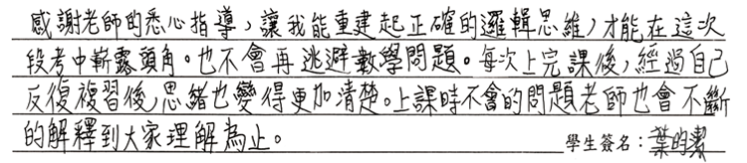 感謝老師的悉心指導，讓我能重建起正確的邏輯思維，才能在這次
段考中嶄露頭角。也不會再逃避數學問題。每次上完課後，經過自己
反復複習後，思緒也變得更加清楚。上課時不會的問題老師也會不斷
的解釋到大家理解為止。
學生簽名：葉昀潔